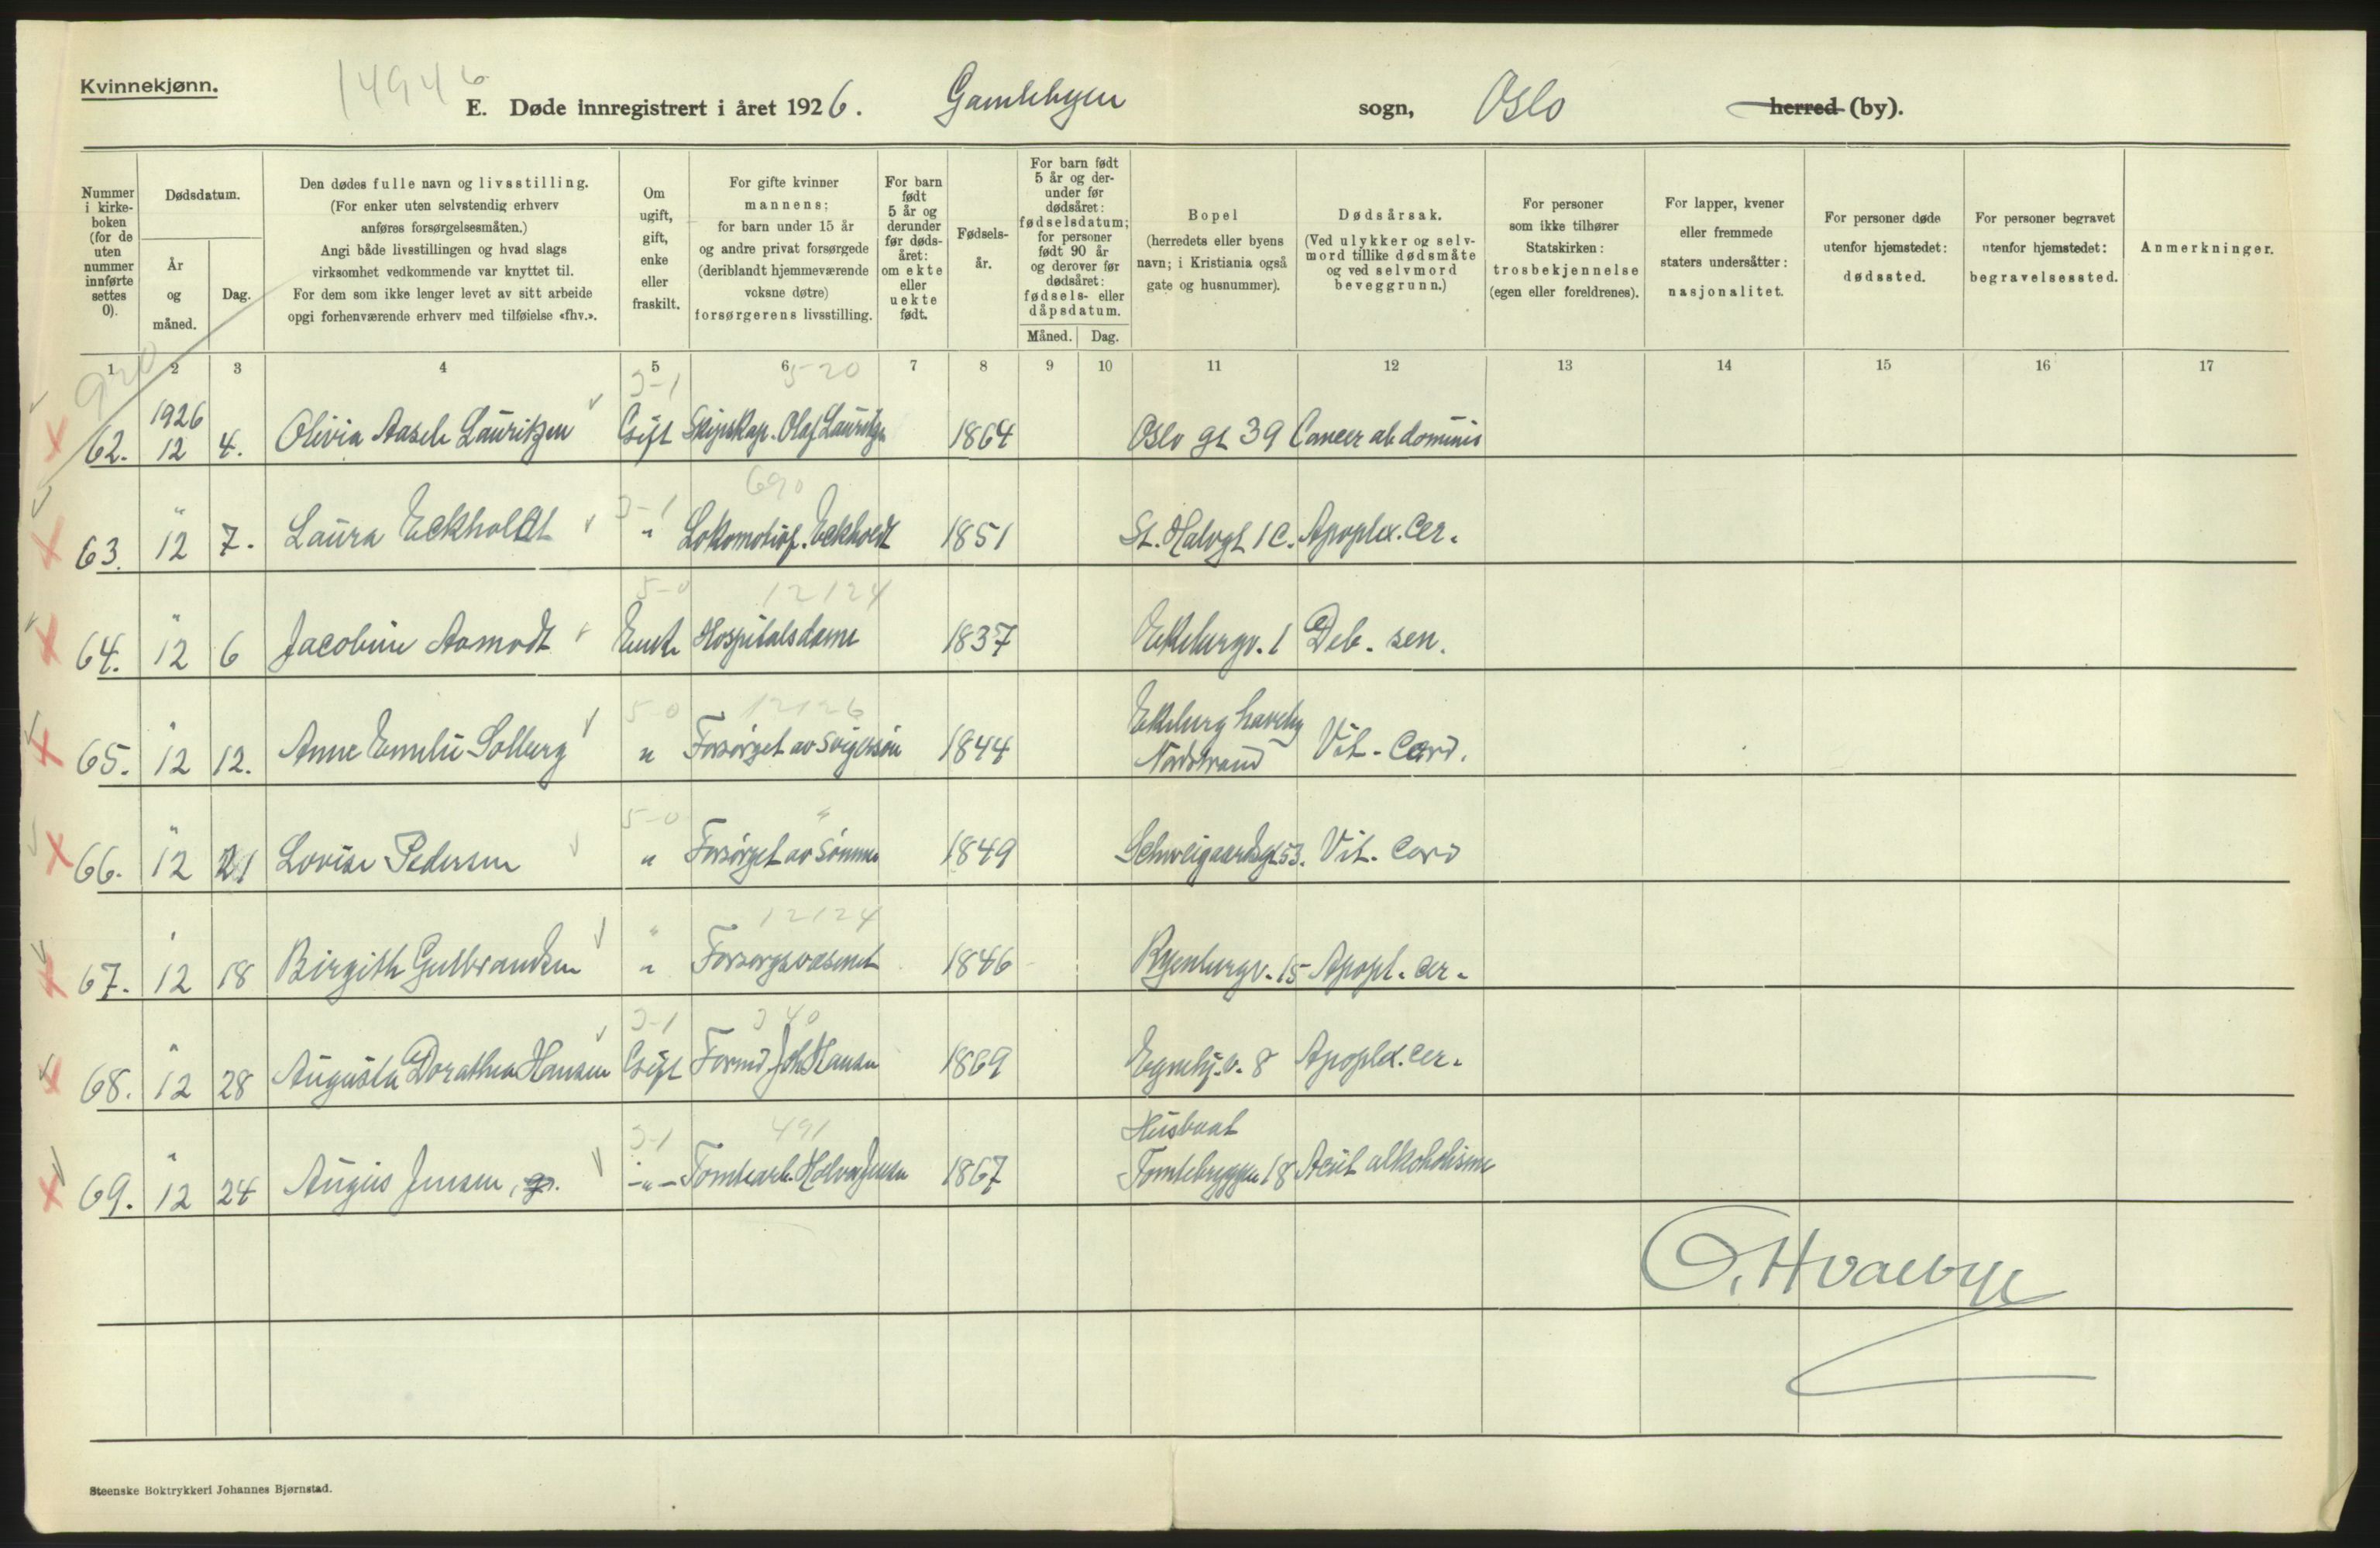 Kvinnekjønn.
14946
E. Døde innregistrert i året 1926. Gamlebyen sogn, Oslo herred (by).
Nummer i kirkeboken (for de uten nummer innførte settes 0).
Dødsdatum.
År og måned.
Dag.
Den dødes fulle navn og livsstilling.
(For enker uten selvstendig erhverv anføres forsørgelsesmåten.)
Angi både livsstillingen og hvad slags virksomhet vedkommende var knyttet til.
For dem som ikke lenger levet av sitt arbeide opgi forhenværende erhverv med tilføielse «fhv.».
Om ugift, gift, enke eller fraskilt.
For gifte kvinner mannens; for barn under 15 år og andre privat forsørgede (deriblandt hjemmeværende voksne døtre) forsørgerens livsstilling.
For barn født 5 år og derunder før dødsåret: om ekte eller uekte født.
Fødselsår.
For barn født 5 år og derunder før dødsåret: fødselsdatum; for personer født 90 år og derover før dødsåret: fødsels- eller dåpsdatum.
Måned. Dag.
Bopel (herredets eller byens navn; i Kristiania også gate og husnummer).
Dødsårsak. (Ved ulykker og selvmord tillike dødsmåte og ved selvmord beveggrunn.)
For personer som ikke tilhører Statskirken: trosbekjennelse (egen eller foreldrenes).
For lapper, kvener eller fremmede staters undersåtter: nasjonalitet.
For personer døde utenfor hjemstedet: dødssted.
For personer begravet utenfor hjemstedet: begravelsessted.
Anmerkninger.
1 2 3 4 5 6 7 8 9 10 11 12 13 14 15 16 17
920 3-1 520
62. 1926 12 4. Olivia Aasele Lauritzen Gift Skipskap. Olaf Lauritzen 1864 Oslo gt 39 Cancer abdominis
3-1 690
63. " 12 7. Laura Eckholdt " Lokomotivf. Eckholdt 1851 St. Halvgt 1 C. Apoplex. Cer.
5-0 12124
64. " 12 6 Jacobine Aamodt Enke Hospitalsdame 1837 Ekebergv. 1 Deb. sen.
5-0 12126
65. " 12 12. Anne Emilie Solberg " Forsørget av svigersøn 1844 Ekeberg haveby Nordstrand Vit. Card.
5-0 "
66. " 12 21 Lovise Pedersen " Forsørget av sønner 1849 Schweigaardsgt 53. Vit. Card
" 12124
67. " 12 18 Birgith Gulbrandsen " Forsorgsvæsenet 1846 Ryenbergv. 15 Apopl. Cer.
3-1 340
68. " 12 28 Augusta Dorathea Hansen Gift Formd Joh Hansen 1869 Egnehj. v. 8 Apoplex. Cer.
3-1 491
69. " 12 24 Augus Jensen, g. -"- Tomtearb. Halvor Jensen 1867 Husbaat Tomtebryggen 18 Acut alkoholisme
O. Hvaebye
Steenske Boktrykkeri Johannes Bjørnstad.